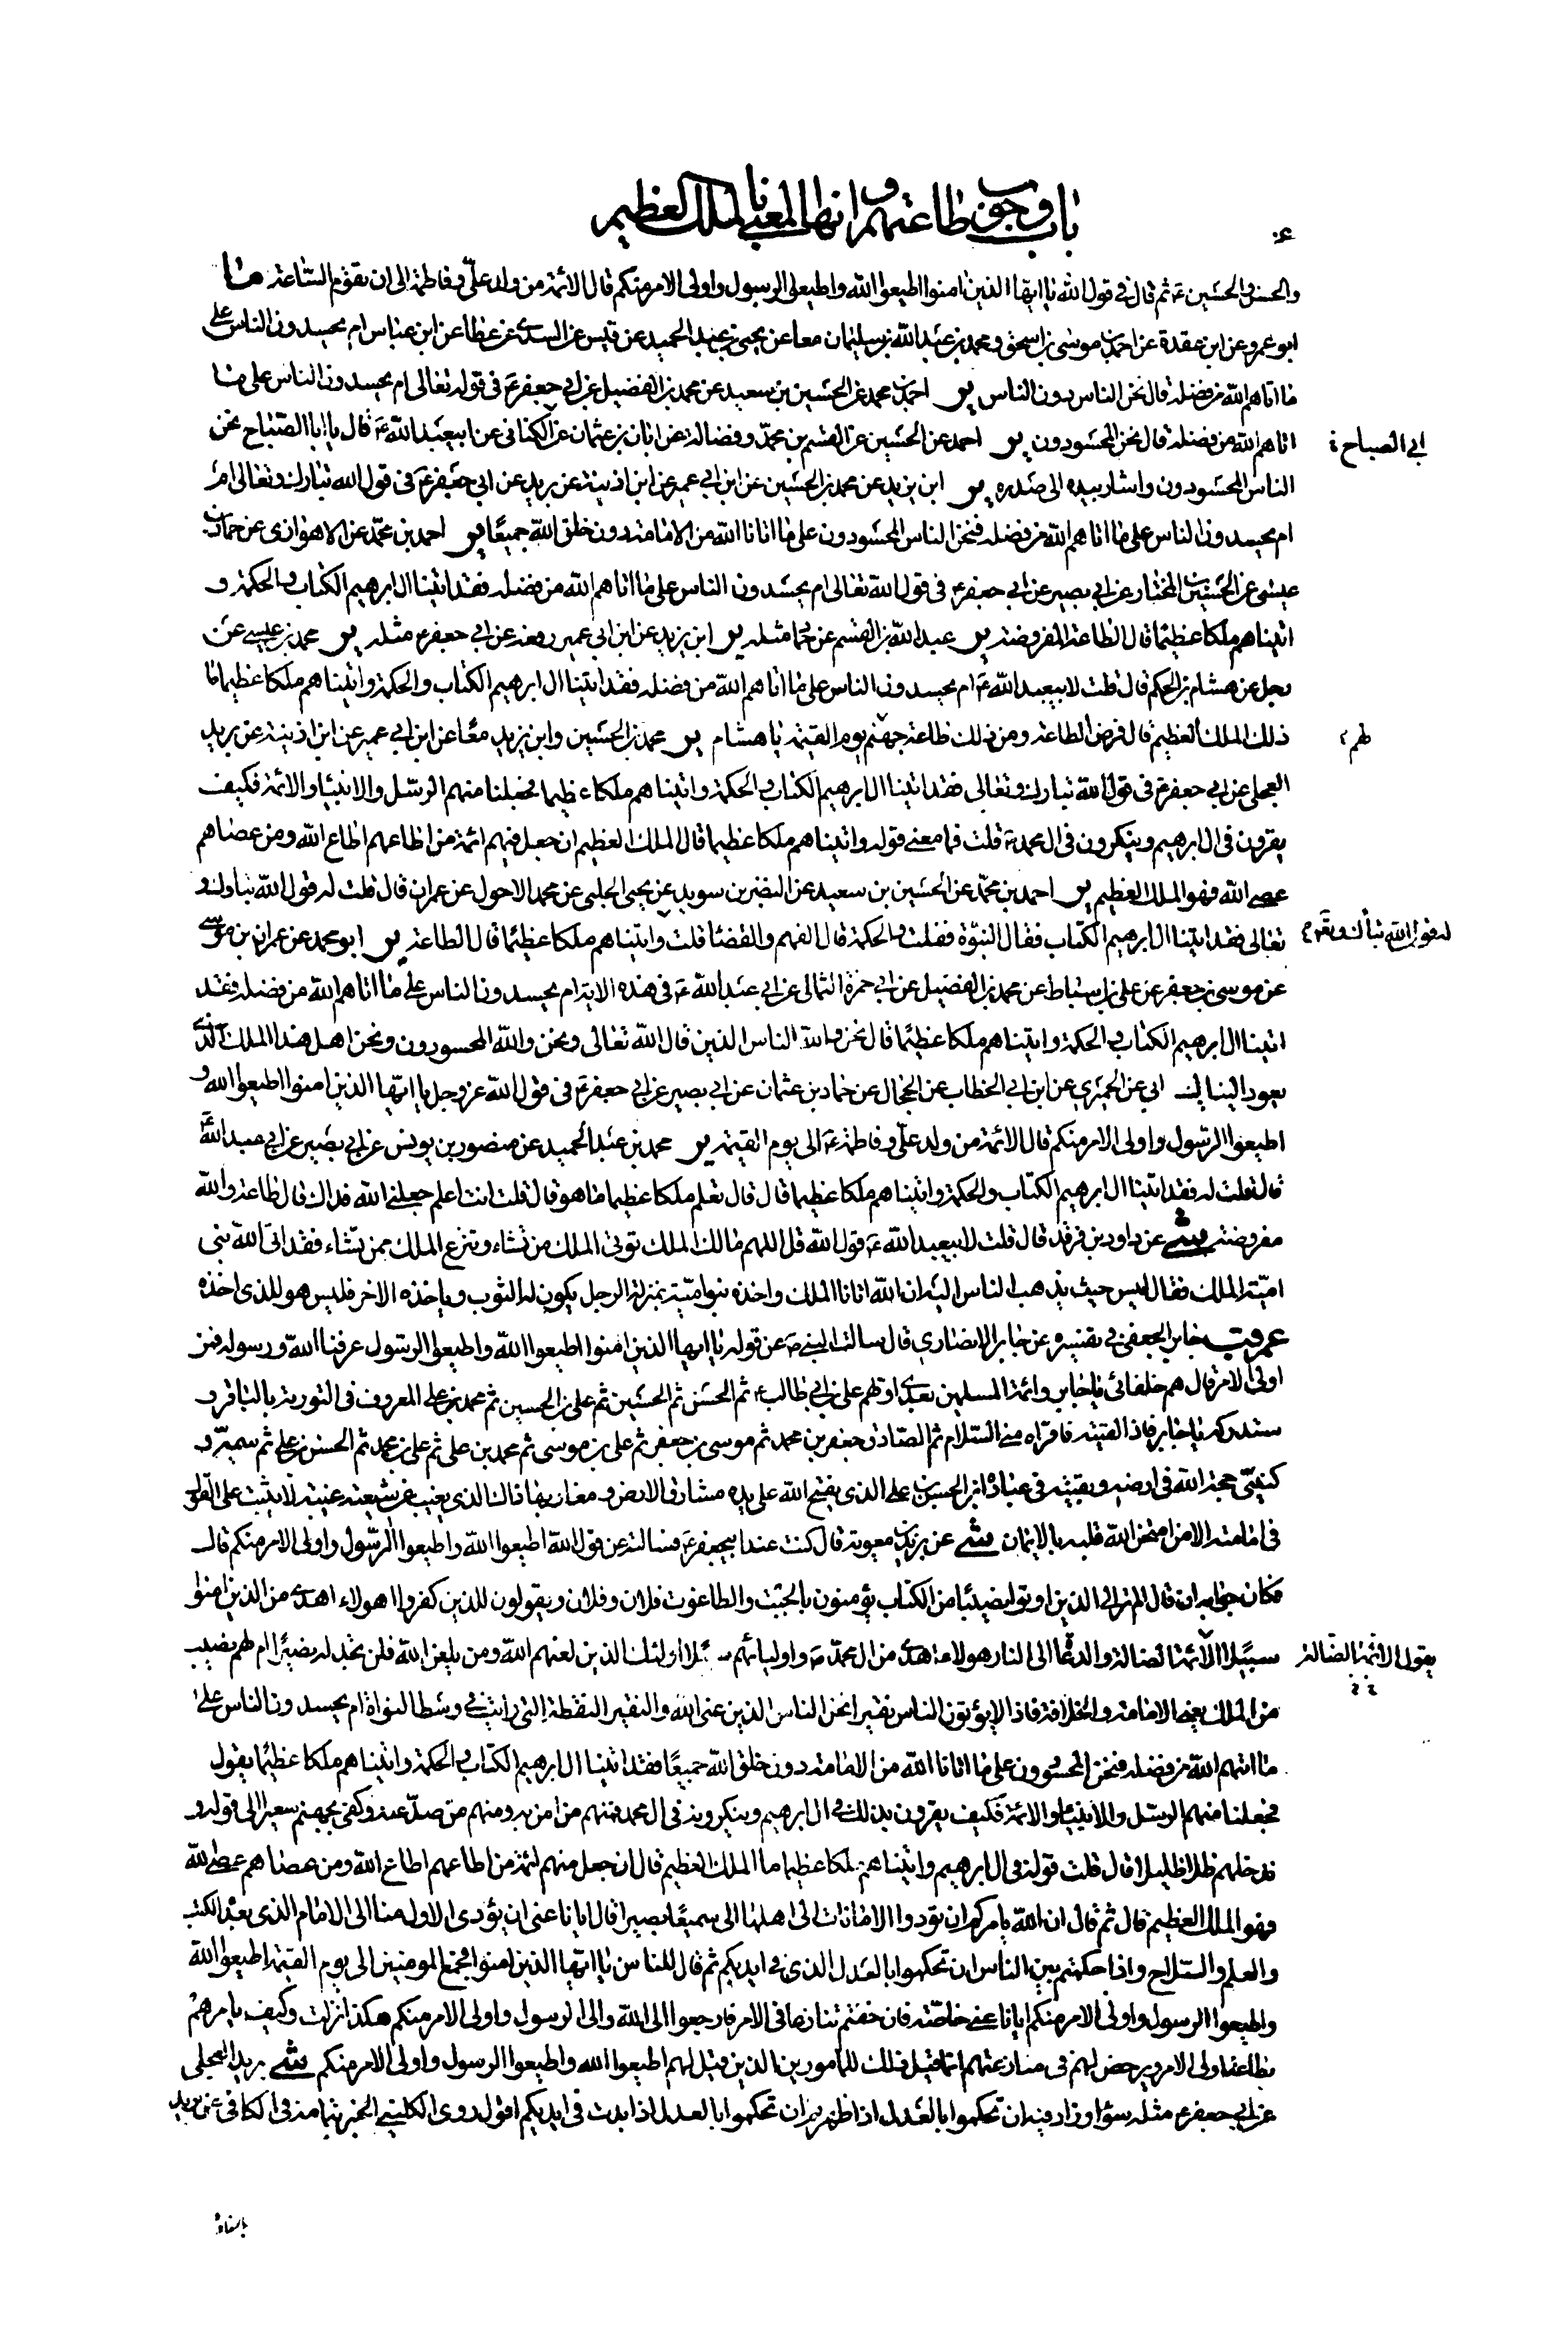 باب وجوب طاعتهم وانها المعنى بالملك العظيم
٤٠
والحسن والحسين ع ثم قال في قول الله يا ايها الذين امنوا اطيعوا الله واطيعوا الرسول واولى الامر منكم قال الائمة من ولد علي وفاطمة الى ان تقوم الساعة ما
ابو عمرو عن ابن عقدة عن احمد بن موسى بن اسحق ومحمد بن عبد الله بن سليمان معا عن يحيى بن عبد الحميد عن قيس عن السدى عن عطا عن ابن عباس ام يحسدون الناس على
ما اتاهم الله من فضله قال نحن الناس دون الناس ير احمد بن محمد عن الحسين بن سعيد عن محمد بن الفضيل عن ابي جعفر ع في قوله تعالى ام يحسدون الناس على ما
اتاهم الله من فضله قال نحن المحسودون ير احمد عن الحسين عن القسم بن محمد وفضالة عن ابان بن عثمان عن الكناني عن ابيعبد الله ع قال يا ابا الصباح نحن
ابي الصباح
الناس المحسودون واشار بيده الى صدره ير ابن يزيد عن محمد بن الحسين عن ابن ابي عمير عن ابن اذينة عن بريد عن ابي جعفر ع في قول الله تبارك وتعالى ام
ام يحسدون الناس على ما اتاهم الله من فضله فنحن الناس المحسودون على ما اتانا الله من الامامة دون خلق الله جميعا ير احمد بن محمد عن الاهوازى عن حماد بن
عيسى عن الحسين بن المختار عن ابي بصير عن ابي جعفر ع في قول الله تعالى ام يحسدون الناس على ما اتاهم الله من فضله فقد اتينا ال ابرهيم الكتاب والحكمة و
اتيناهم ملكا عظيما قال الطاعة المفروضة ير عبد الله بن القسم عن حماد مثله ير ابن يزيد عن ابن ابي عمير رفعه عن ابي جعفر ع مثله ير محمد بن عيسى عن
رجل عن هشام بن الحكم قال قلت لابيعبد الله ع ام يحسدون الناس على ما اتاهم الله من فضله فقد اتينا ال ابرهيم الكتاب والحكمة واتيناهم ملكا عظيما ما
ذلك الملك العظيم قال فرض الطاعة ومن ذلك طاعة جهنم يوم القيمة يا هشام ير محمد بن الحسين وابن يزيد معا عن ابن ابي عمير عن ابن اذينة عن بريد
لهم
العجلى عن ابي جعفر ع في قول الله تبارك وتعالى فقد اتينا ال ابرهيم الكتاب والحكمة واتيناهم ملكا عظيما فجعلنا منهم الرسل والانبياء والائمة فكيف
يقرون في ال ابرهيم وينكرون في ال محمد ص قلت فما معنى قوله واتيناهم ملكا عظيما قال الملك العظيم ان جعل فيهم ائمة من اطاعهم اطاع الله ومن عصاهم
عصى الله فهو الملك العظيم ير احمد بن محمد عن الحسين بن سعيد عن النضر بن سويد عن يحيى الحلبى عن محمد الاحول عن عمران قال قلت له قول الله تبارك و
تعالى فقد اتينا ال ابرهيم الكتاب فقال النبوة فقلت والحكمة قال الفهم والقضا قلت واتيناهم ملكا عظيما قال الطاعة ير ابو محمد عن عمران بن موسى
له قول الله تبارك وتعالى
عن موسى بن جعفر عن علي بن اسباط عن محمد بن الفضيل عن ابي حمزة الثمالى عن ابي عبد الله ع في هذه الاية ام يحسدون الناس على ما اتاهم الله من فضله فقد
اتينا ال ابرهيم الكتاب والحكمة واتيناهم ملكا عظيما قال نحن والله الناس الذين قال الله تعالى ونحن والله المحسودون ونحن اهل هذا الملك الذى
يعود الينا ابي عن الحميري عن ابن ابي الخطاب عن الحجال عن حماد بن عثمان عن ابي بصير عن ابي جعفر ع في قول الله عز وجل يا ايها الذين امنوا اطيعوا الله و
اطيعوا الرسول واولى الامر منكم قال الائمة من ولد علي وفاطمة ع الى يوم القيمة ير محمد بن عبد الحميد عن منصور بن يونس عن ابي بصير عن ابي عبد الله ع
قال قلت له فقد اتينا ال ابرهيم الكتاب والحكمة واتيناهم ملكا عظيما قال قال تعلم ملكا عظيما ما هو قال قلت انت اعلم جعلني الله فداك قال طاعة والله
مفروضة شى عن داود بن فرقد قال قلت لابيعبد الله ع قول الله قل اللهم مالك الملك توتى الملك من تشاء وتنزع الملك ممن تشاء فقد اتى الله بني
امية الملك فقال ليس حيث يذهب الناس اليه ان الله اتانا الملك واخذه بنو امية بمنزلة الرجل يكون له الثوب وياخذه الاخر فليس هو للذى اخذه
جابر الجعفى في تفسيره عن جابر الانصاري قال سالت النبي ص عن قوله يا ايها الذين امنوا اطيعوا الله واطيعوا الرسول عرفنا الله ورسوله فمن
اولى الامر قال هم خلفائى يا جابر وائمة المسلمين بعدى اولهم علي بن ابي طالب ع ثم الحسن ثم الحسين ثم علي بن الحسين ثم محمد بن علي المعروف في التورية بالباقر و
ستدركه يا جابر فاذا لقيته فاقراه منى السلام ثم الصادق جعفر بن محمد ثم موسى بن جعفر ثم علي بن موسى ثم محمد بن علي ثم علي بن محمد ثم الحسن بن علي ثم سميي و
كنيي حجة الله في ارضه وبقيته في عباده ابن الحسن بن علي الذى يفتح الله على يده مشارق الارض ومغاربها ذاك الذى يغيب عن شيعته غيبة لا يثبت على القول
في امامته الا من امتحن الله قلبه بالايمان شى عن بريد بن معوية قال كنت عند ابيجعفر ع فسالته عن قول الله اطيعوا الله واطيعوا الرسول واولى الامر منكم قال
فكان جوابه ان قال الم تر الى الذين اوتوا نصيبا من الكتاب يؤمنون بالجبت والطاغوت فلان وفلان ويقولون للذين كفروا هولاء اهدى من الذين امنوا
سبيلا الائمة الضالة والدعاة الى النار هولاء اهدى من ال محمد ص واوليائهم سبيلا اولئك الذين لعنهم الله ومن يلعن الله فلن تجد له نصيرا ام لهم نصيب
يقول الائمة الضالة
من الملك يعنى الامامة والخلافة فاذا لا يؤتون الناس نقيرا نحن الناس الذين عنى الله والنقير النقطة التى رايت في وسط النواة ام يحسدون الناس على
ما اتيهم الله من فضله فنحن المحسودون على ما اتانا الله من الامامة دون خلق الله جميعا فقد اتينا ال ابرهيم الكتاب والحكمة واتيناهم ملكا عظيما يقول
فجعلنا منهم الرسل والانبياء والائمة فكيف يقرون بذلك في ال ابرهيم وينكرونه في ال محمد فمنهم من امن به ومنهم من صد عنه وكفى بجهنم سعيرا الى قوله و
ندخلهم ظلا ظليلا قال قلت قوله في ال ابرهيم واتيناهم ملكا عظيما ما الملك العظيم قال ان جعل منهم ائمة من اطاعهم اطاع الله ومن عصاهم عصى الله
فهو الملك العظيم قال ثم قال ان الله يامركم ان تودوا الامانات الى اهلها الى سميعا بصيرا قال ايانا عنى ان يؤدى الاول منا الى الامام الذى بعده الكتب
والعلم والسلاح واذا حكمتم بين الناس ان تحكموا بالعدل الذى في ايديكم ثم قال للناس يا ايها الذين امنوا فجمع المومنين الى يوم القيمة اطيعوا الله
واطيعوا الرسول واولى الامر منكم ايانا عنى خاصة فان خفتم تنازعا في الامر فارجعوا الى الله والى الرسول واولى الامر منكم هكذا نزلت وكيف يامرهم
بطاعة اولى الامر ويرخص لهم في منازعتهم انما قيل ذلك للمامورين الذين قيل لهم اطيعوا الله واطيعوا الرسول واولى الامر منكم شى بريد العجلى
عن ابي جعفر ع مثله سؤا وزاد فيه ان تحكموا بالعدل اذا ظهرتم ان تحكموا بالعدل اذا بدت في ايديكم اقول روى الكلينى الخبر بتمامه في الكافى عن بريد
باسناده